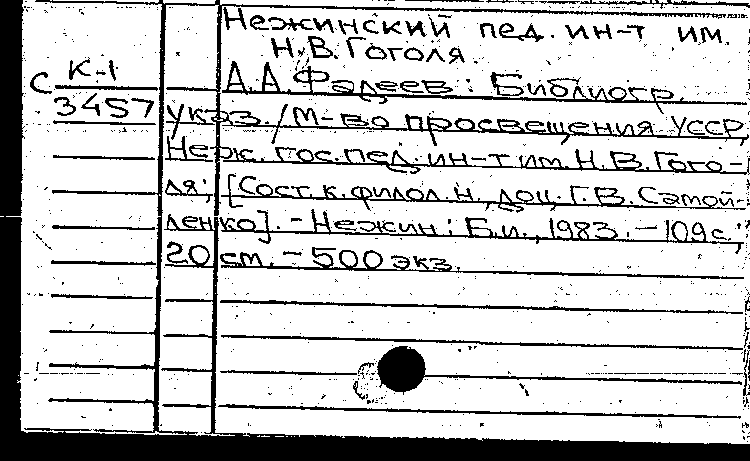 Нежинский пед. ин-т им.
Н.В. Гоголя.
С К-1
3457
А.А. Фадеев : Библиогр.
указ. / М-во просвещения УССР,
Неж. гос. пед. ин-т им. Н.В. Гого-
ля; [Сост. к. филол. н., доц. Г.В. Самой-
ленко]. - Нежин : Б.и., 1983. - 109 с.;
20 см. - 500 экз.